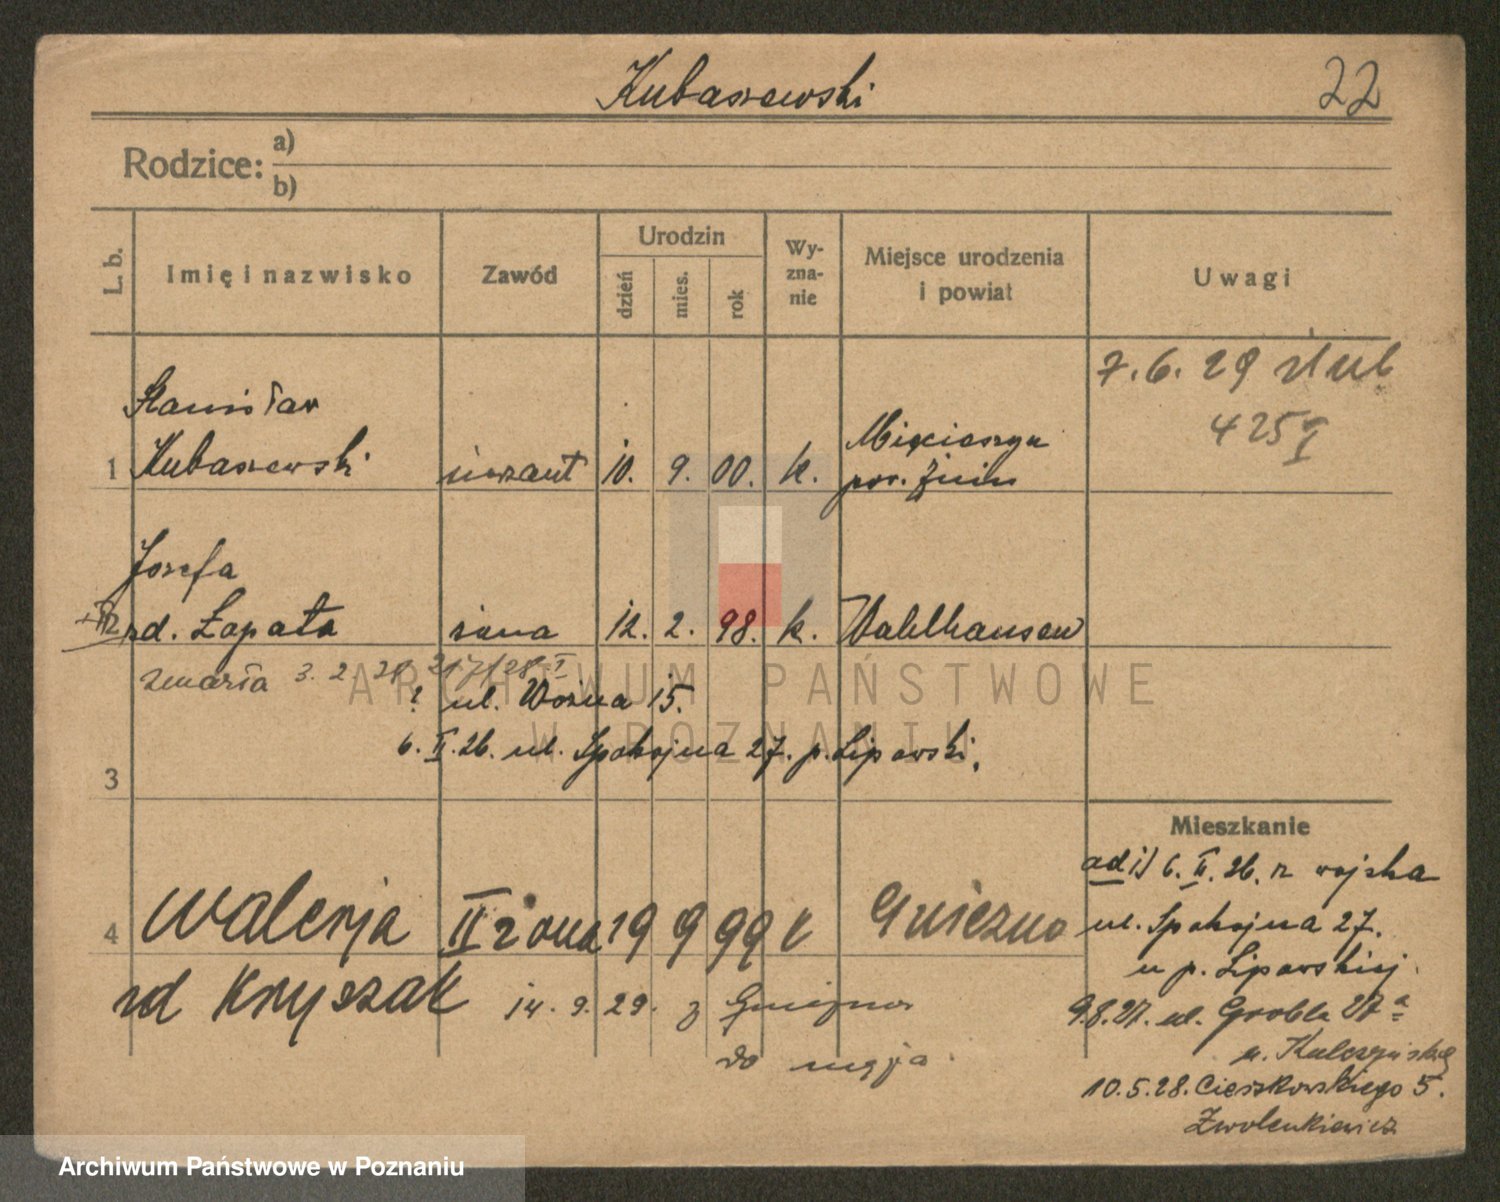 Kubaszewski 22
Rodzice: a)
b)
L. b. Imię i nazwisko Zawód Urodzin dzień mies. rok Wy-zna-nie Miejsce urodzenia i powiat Uwagi
7.6.29 ślub
425 I
Stanisław
1 Kubaszewski 10. 9. 00. k.
pow. Żnin
Józefa
rd. Łopata żona 12. 2. 98. k. Wahlhausen
zmarła 3. 2. 28 I
ul. Woźna 15.
6. II. 26. ul. Spokojna 27. p. Lipowski.
3
Mieszkanie
ad 1) 6. II. 26. z wojska
ul. Spokojna 27.
u p. Lipowskiej
4 Walerja II żona 19 9 99 k Gniezno
rd Kryszak 14. 9. 29. z Gniezna
do męża
9.8.27. ul. Grobla 27a
u. Kulczyńskiej
10.5.28. Cieszkowskiego 5.
Zwolenkiewicz
ARCHIWUM PAŃSTWOWE
W POZNANIU
Archiwum Państwowe w Poznaniu